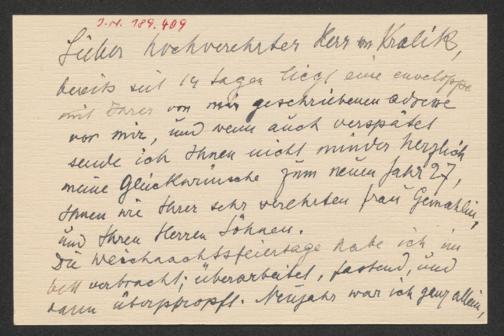 J.N. 189.409
Lieber hochverehrter Herr von Kralik,
bereits seit 14 tagen liegt eine enveloppe
mit Ihrer von mir geschriebenen adresse
vor mir, und wenn auch verspätet
sende ich Ihnen nicht minder herzlich
meine Glückwünsche zum neuen Jahr 27,
Ihnen wie Ihrer sehr verehrten Frau Gemahlin,
und Ihren Herren Söhnen.
Die Weihnachtsfeiertage habe ich im
bett verbracht; überarbeitet, fastend, und
daran überpfropft. Neujahr war ich ganz allein,